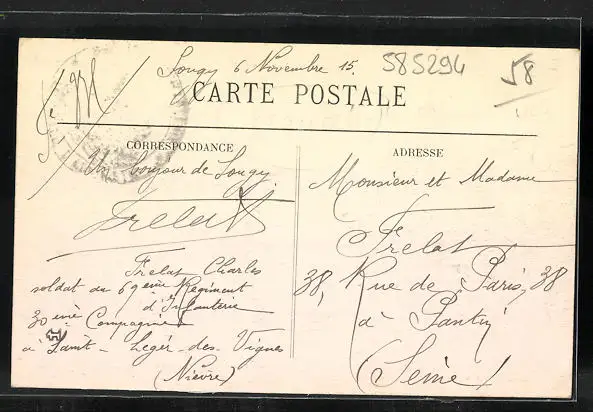 Sougy 6 Novembre 15.
585294
58
CARTE POSTALE
CORRESPONDANCE
Un bonjour de Sougy
Frelat
Frelat Charles
soldat au 69eme Régiment
d'Infanterie
30eme Compagnie
à Saint-Leger-des-Vignes
(Nièvre)
ADRESSE
Monsieur et Madame
Frelat
38, Rue de Paris, 38
à Pantin
(Seine)